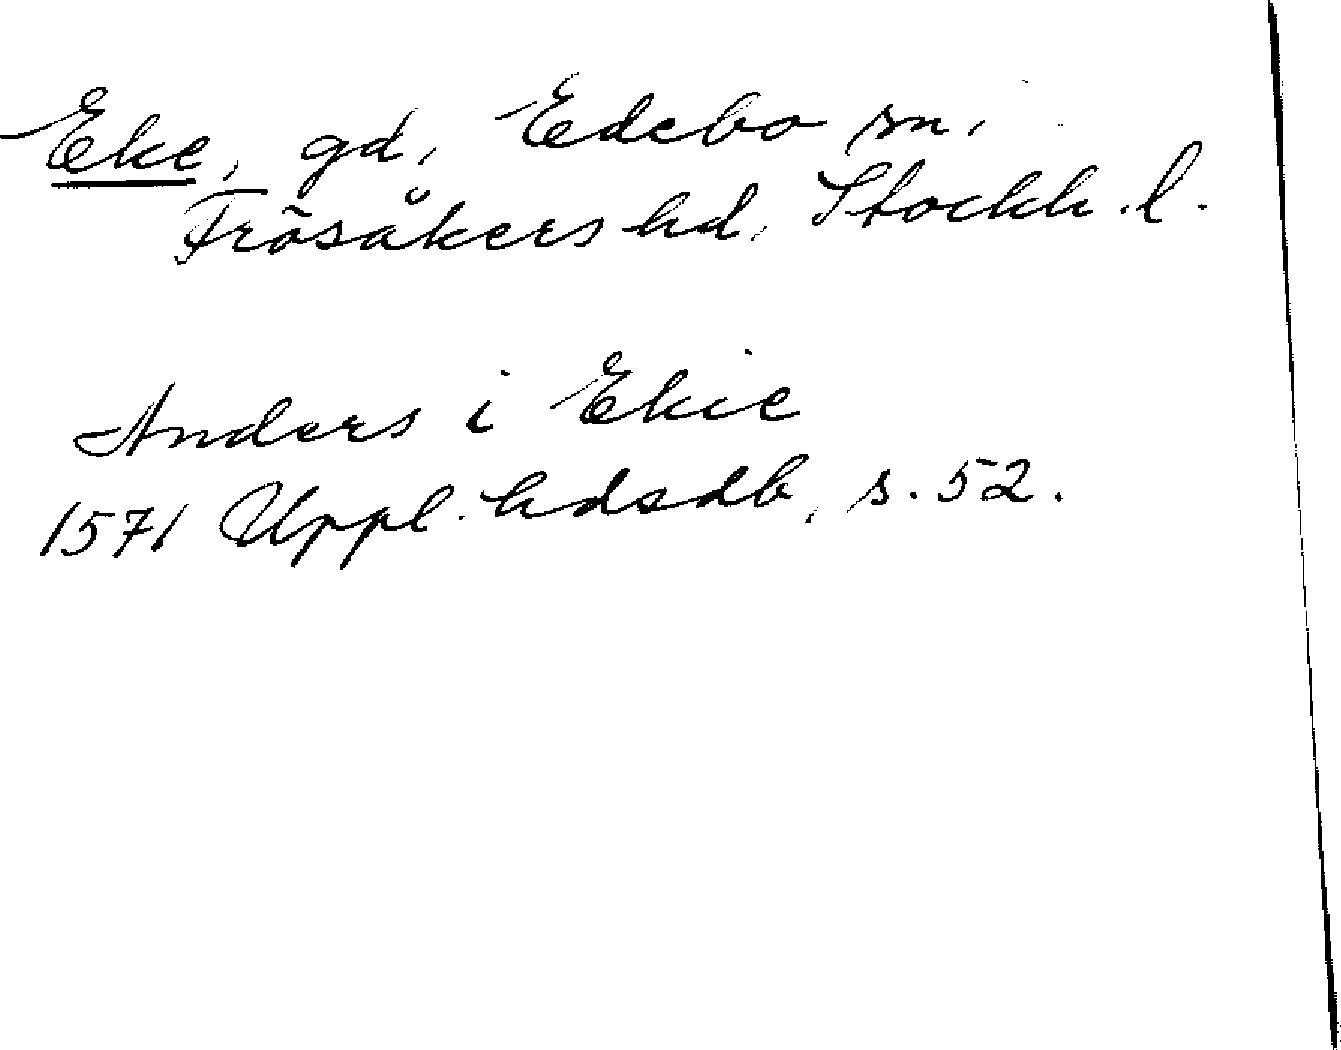 Eke, gd, Edebo sn,
Frösåkers hd, Stockh. l.
Anders i Ekie
1571 Uppl. hdsdb, s. 52.